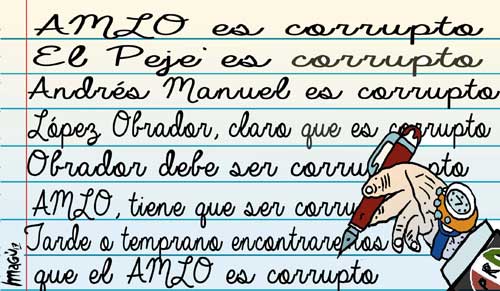 AMLO es corrupto
El Peje es corrupto
Andrés Manuel es corrupto
López Obrador, claro que es corrupto
Obrador debe ser corrupto
AMLO, tiene que ser corru
Tarde o temprano encontraremos
que el AMLO es corrupto